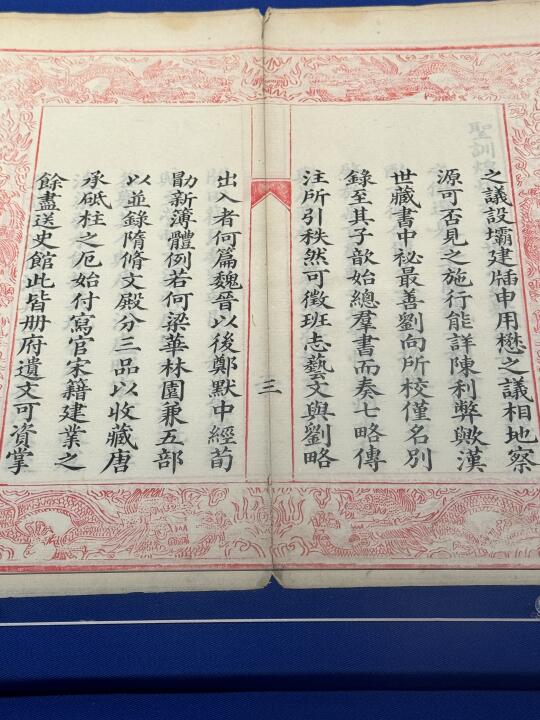 之議設壩建牐申用懋之議相地察
源可否見之施行能詳陳利弊歟漢
世藏書中祕最善劉向所校僅名別
錄至其子歆始總羣書而奏七略傳
注所引秩然可徵班志藝文與劉略
三
出入者何篇魏晉以後鄭默中經荀
勗新薄體例若何梁華林園兼五部
以並錄隋脩文殿分三品以收藏唐
承砥柱之厄始付寫官宋籍建業之
餘盡送史館此皆册府遺文可資掌